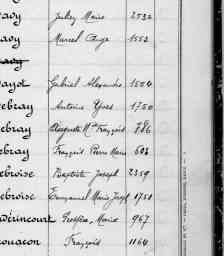 avy Marie 2532
avy Marcel Ange 1553
avy
ayot Gabriel Alexandre 1504
ebray Antoine Yves 1750
ebray Auguste Mie François 786
ebray François Pierre Marie 603
ebroise Baptiste Joseph 2359
ebroise Emmanuel Marie Joseph 1751
Dérincourt Marie 967
ouacon François 1164